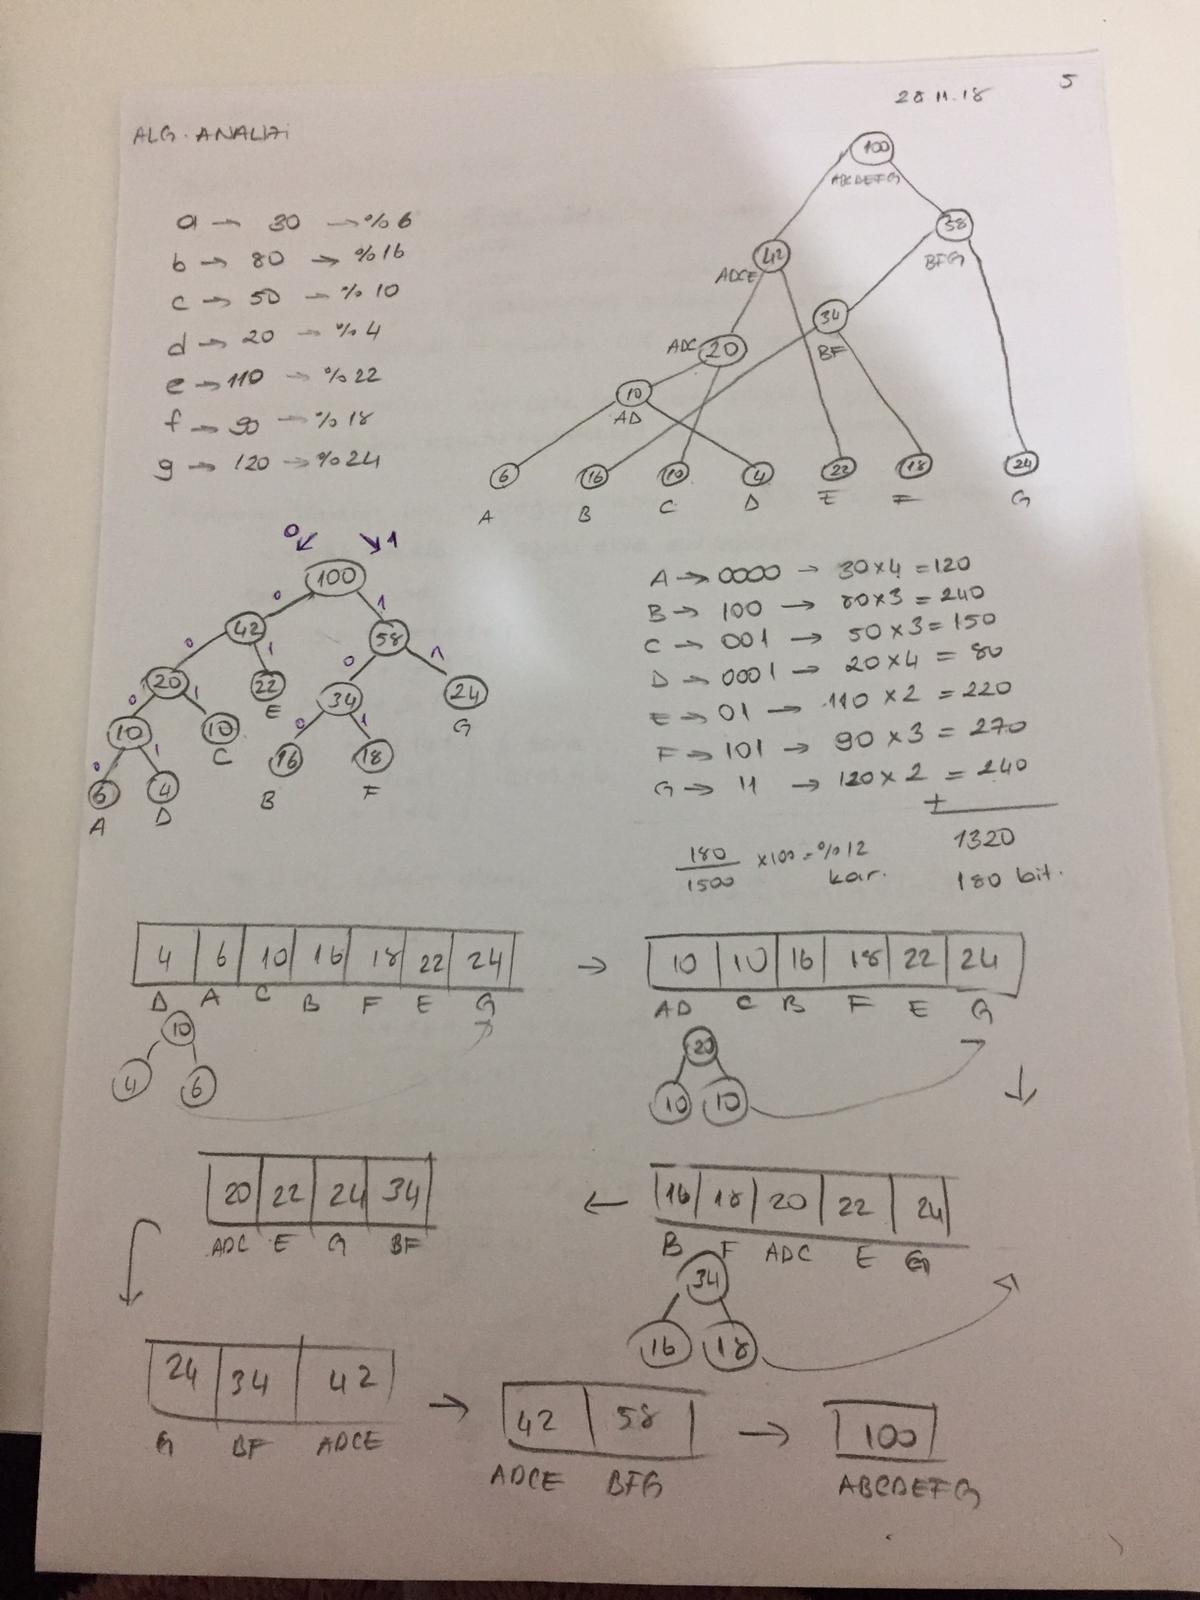 28.11.18
5
ALG. ANALİZİ
a → 30 → %6
b → 80 → %16
c → 50 → %10
d → 20 → %4
e → 110 → %22
f → 90 → %18
g → 120 → %24
100
ABCDEFG
42
ADCE
38
BFG
34
BF
ADC 20
10
AD
6 16 10 4 22 18 24
A B C D E F G
0 1
100
0 1
42 58
0 1 0 1
20 22 34 24
E G
0 1 0 1
10 10 16 18
C B F
0 1
6 4
A D
A → 0000 → 30x4 = 120
B → 100 → 80x3 = 240
C → 001 → 50x3 = 150
D → 0001 → 20x4 = 80
E → 01 → 110x2 = 220
F → 101 → 90x3 = 270
G → 11 → 120x2 = 240
+
1320
180 bit.
180/1500 x100 = %12
kar.
4 6 10 16 18 22 24
D A C B F E G
10
4 6
→
10 10 16 18 22 24
AD C B F E G
20
10 10
↓
16 18 20 22 24
B F ADC E G
34
16 18
←
20 22 24 34
ADC E G BF
24 34 42
G BF ADCE
→
42 58
ADCE BFG
→
100
ABCDEFG